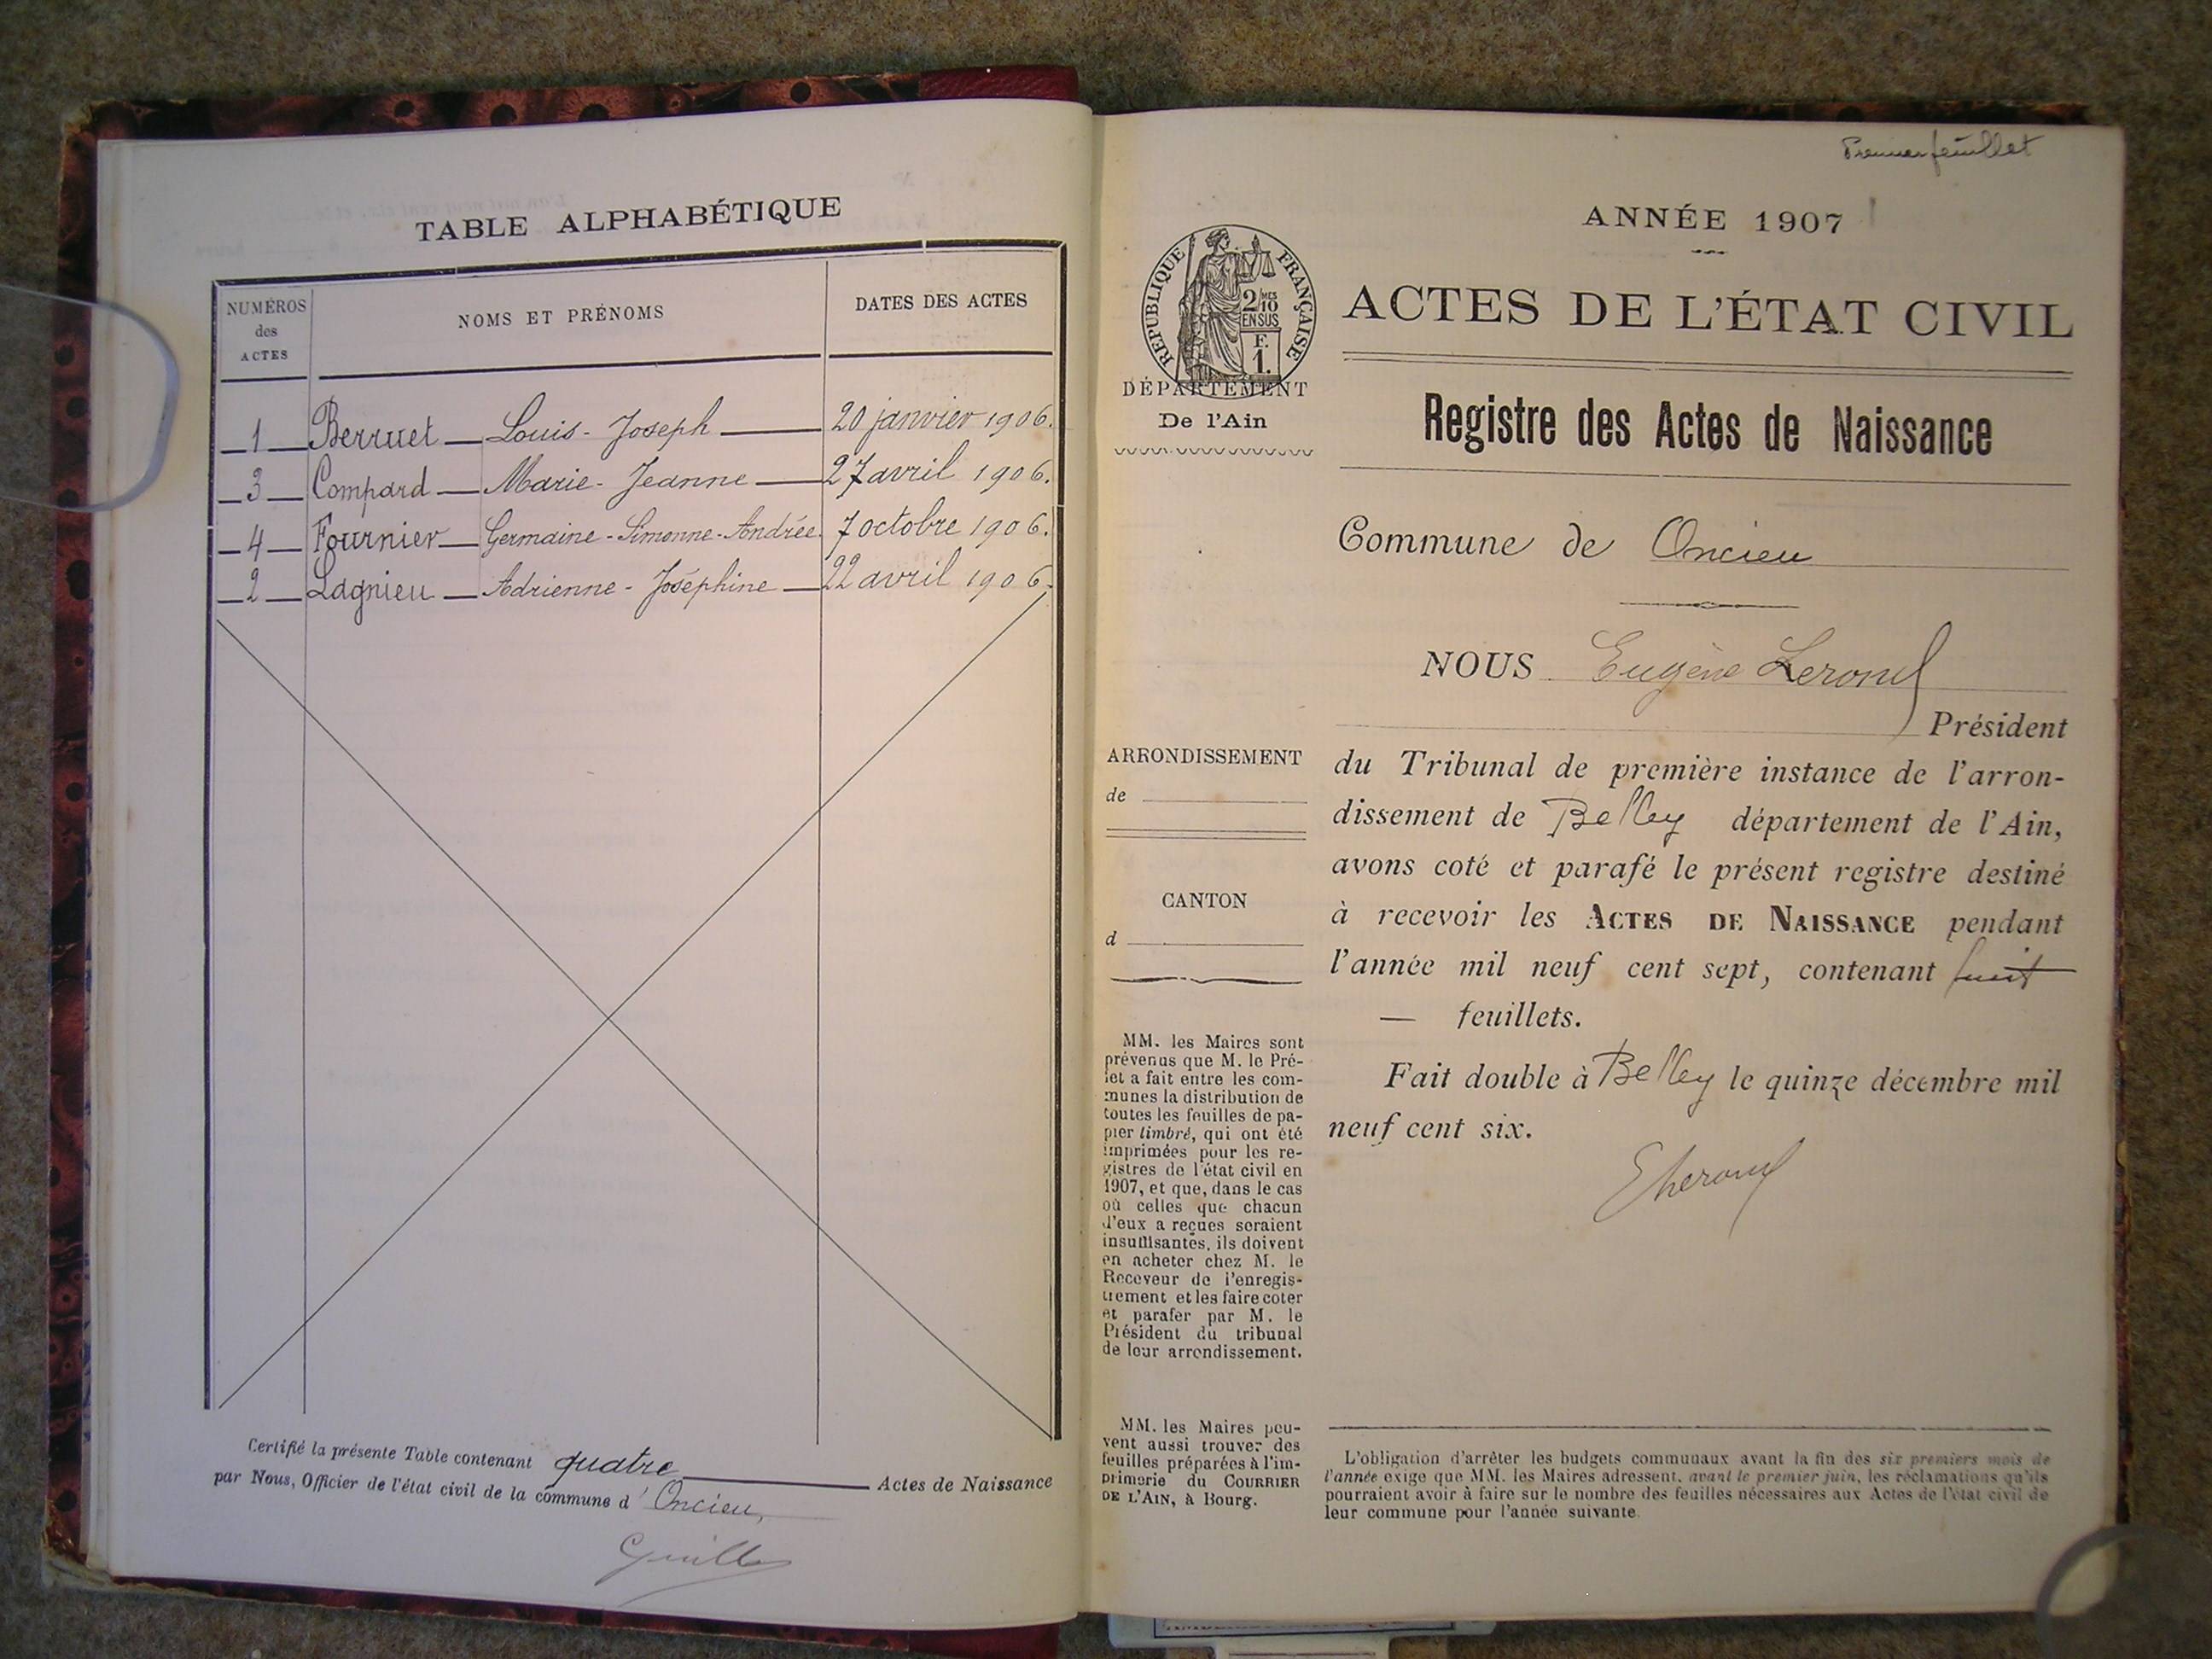 TABLE ALPHABÉTIQUE
NUMÉROS
des
ACTES
NOMS ET PRÉNOMS
DATES DES ACTES
1 Berruet Louis-Joseph 20 janvier 1906.
3 Compard Marie-Jeanne 27 avril 1906.
4 Fournier Germaine-Simonne-Andrée 7 octobre 1906.
2 Lagnieu Adrienne-Joséphine 22 avril 1906.
Certifié la présente Table contenant quatre Actes de Naissance
par Nous, Officier de l'état civil de la commune d'Oncieu,
Premier feuillet
ANNÉE 1907
RÉPUBLIQUE FRANÇAISE
2/10 MES
EN SUS
F.
1.
DÉPARTEMENT
De l'Ain
ACTES DE L'ÉTAT CIVIL
Registre des Actes de Naissance
Commune de Oncieu
NOUS Eugène
Président
du Tribunal de première instance de l'arron-
dissement de Belley département de l'Ain,
avons coté et parafé le présent registre destiné
à recevoir les ACTES DE NAISSANCE pendant
l'année mil neuf cent sept, contenant huit
— feuillets.
Fait double à Belley le quinze décembre mil
neuf cent six.
ARRONDISSEMENT
de
CANTON
d
MM. les Maires sont
prévenus que M. le Pré-
fet a fait entre les com-
munes la distribution de
toutes les feuilles de pa-
pier timbré, qui ont été
imprimées pour les re-
gistres de l'état civil en
1907, et que, dans le cas
où celles que chacun
d'eux a reçues seraient
insuffisantes, ils doivent
en acheter chez M. le
Receveur de l'enregis-
trement et les faire coter
et parafer par M. le
Président du tribunal
de leur arrondissement.
MM. les Maires peu-
vent aussi trouver des
feuilles préparées à l'im-
primerie du COURRIER
DE L'AIN, à Bourg.
L'obligation d'arrêter les budgets communaux avant la fin des six premiers mois de
l'année exige que MM. les Maires adressent, avant le premier juin, les réclamations qu'ils
pourraient avoir à faire sur le nombre des feuilles nécessaires aux Actes de l'état civil de
leur commune pour l'année suivante.